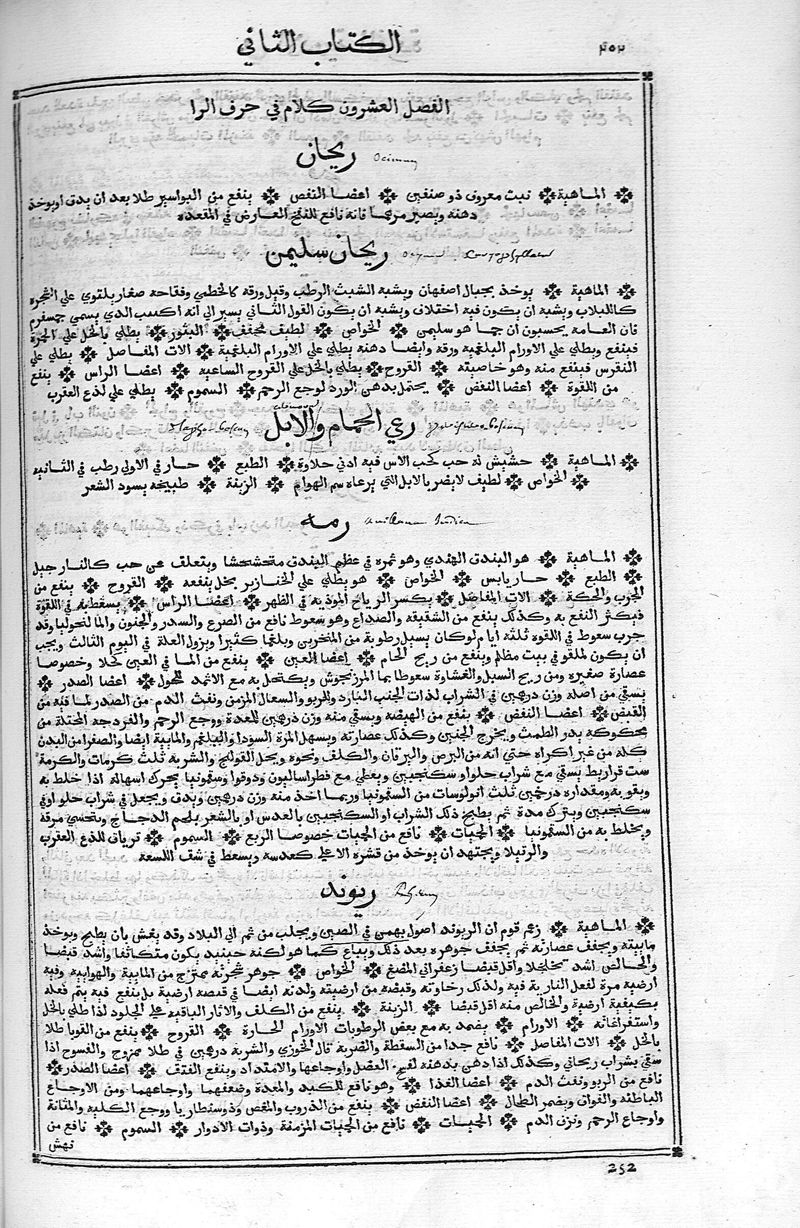 الكتاب الثاني
٢٥٢
الفصل العشرون كلام في حرف الرا
ريحان Ocimum
الماهية نبت معروف ذو صنفين اعضا النفض ينفع من البواسير طلا بعد ان يدق او يوخذ
دهنه ويصير مرهما فانه نافع للنفخ العارض في المقعدة
ريحان سليمن
الماهية يوخذ بجبال اصفهان ويشبه الشبث الرطب وقيل ورقه كالخطمي وفقاحه صغار يلتوي علي الشجرة
كاللبلاب ويشبه ان يكون فيه اختلاف ويشبه ان يكون القول الثاني يسير الي انه الذي يسمي جمسفرم
فان العامه يحسبون ان جما هو سليمن الخواص لطيف مجفف البثور يطلي بالخل علي الحمرة
فينفع ويطلي علي الاورام البلغمية ورقه وايضا دهنه يطلي علي الاورام البلغمية الات المفاصل يطلي علي
النقرس فينفع منه وهو خاصيته القروح يطلي بالخل علي القروح الساعية اعضا الراس ينفع
من اللقوة اعضا النفض يحتمل بدهن الورد لوجع الرحم السموم يطلي علي لدغ العقرب
رعي الحمام والابل
الماهية حشيش له حب كحب الاس فيه ادني حلاوة الطبع حار في الاولي رطب في الثانيه
الخواص لطيف لا يضر بالابل التي يرعاه سم الهوام الزينة طبيخه يسود الشعر
رمه
الماهية هو البندق الهندي وهو ثمره في عظم البندق متخشخشا ويتفلق عن حب كالنارجيل
الطبع حار يابس الخواص هو يطلي علي الخنازير بخل ينفعه القروح ينفع من
الجرب والحكة الات المفاصل يكسر الرياح الموذية في الظهر اعضا الراس يسقط به في اللقوة
فيكثر النفع به وكذلك ينفع من الشقيقه والصداع وهو سعوط نافع من الصرع والسدر والجنون والمالنخوليا وقد
جرب سعوط في اللقوه ثلثه ايام لو كان يسيل رطوبة من المنخرين وبلغما كثيرا ويزول العلة في اليوم الثالث ويجب
ان يكون لملقو في بيت مظلم وينفع من ريح الخام اعضا العين ينفع من الما في العين كحلا وخصوصا
عصارة صغيره ومن ريح السبل والغشاوة سعوطا بما المرزنجوش ويكتحل به مع الاثمد للحول اعضا الصدر
يسقي من اصله وزن درهمين في الشراب لذات الجنب البارد وللربو والسعال المزمن ونفث الدم من الصدر لما فيه من
القبض اعضا النفض ينفع من الهيضه ويسقي منه وزن درهمين للمعدة ووجع الرحم والفرزجه المحتملة من
يدر الطمث ويخرج الجنين وكذلك عصارته ويسهل المرة السودا والبلغم والمايية ايضا والصفرا من البدن
كله من غير اكراه حتي انه من البرص واليرقان والكلف ونحوه ويحل القولنج والشربة ثلث كرمات والكرمة
ست قراريط يسقي مع شراب حلو او سكنجبين ويعطي مع فطراساليون ودوقوا وسقمونيا يحرك اسهاله اذا خلط به
ويقويه ومقداره درخمين ثلث انولوسات من السقمونيا وربما اخذ منه وزن درهمين ويدق ويجعل في شراب حلو او في
سكنجبين ويترك مدة ثم يطبخ ذلك الشراب او السكنجبين بالعدس او بالشعير بلحم الدجاج ويتحسي مرقه
ويخلط به من السقمونيا الحميات نافع من الحميات خصوصا الربع السموم ترياق للدغ العقرب
والرتيلا ويجتهد ان يوخذ من قشره الاعلي كعدسه ويسعط في شف اللسعه
ريوند
الماهية زعم قوم ان الريوند اصول بهمن في الصين ويجلب من ثم الي البلاد وقد يغش بان يطبخ ويوخذ
ماييته ويجفف عصارته ثم يجفف جوهره بعد ذلك ويباع كما هو لكنه حينيذ يكون متكاثفا واشد قبضا
والخالص اشد تخلخلا واقل قبضا زعفراني المضغ الخواص جوهر شجرته ممتزج من المايية والهوايية وفيه
ارضية مرة لفعل النارية فيه ولذلك رخاوته وقبضه من ارضيته ولدنه ايضا في قبضه ارضية بل ينفع فيه يتم فعله
بكيفية ارضية والخالص منه اقل قبضا الزينة ينفع من الكلف والاثار الباقيه علي الجلود اذا طلي بالخل
واستفراغاته الاورام يضمد به مع بعض الرطوبات الاورام الحارة القروح ينفع من القوبا طلا
بالخل الات المفاصل نافع جدا من السقطة والضربة قال الخوزي والشربة درهمين في طلا ممزوج والفسوخ اذا
سقي بشراب ريحاني وكذلك اذا دهن بدهنه لفسخ العضل واوجاعها والامتداد وينفع الفتق اعضا الصدر
نافع من الربو ونفث الدم اعضا الغذا وهو نافع للكبد والمعدة وضعفهما واوجاعهما ومن الاوجاع
الباطنه والفواق ويضمر الطحال اعضا النفض ينفع من الذروب والمغص وذوسنطاريا ووجع الكليه والمثانة
واوجاع الرحم ونزف الدم الحميات نافع من الحميات المزمنة وذوات الادوار السموم نافع من
نهش
252